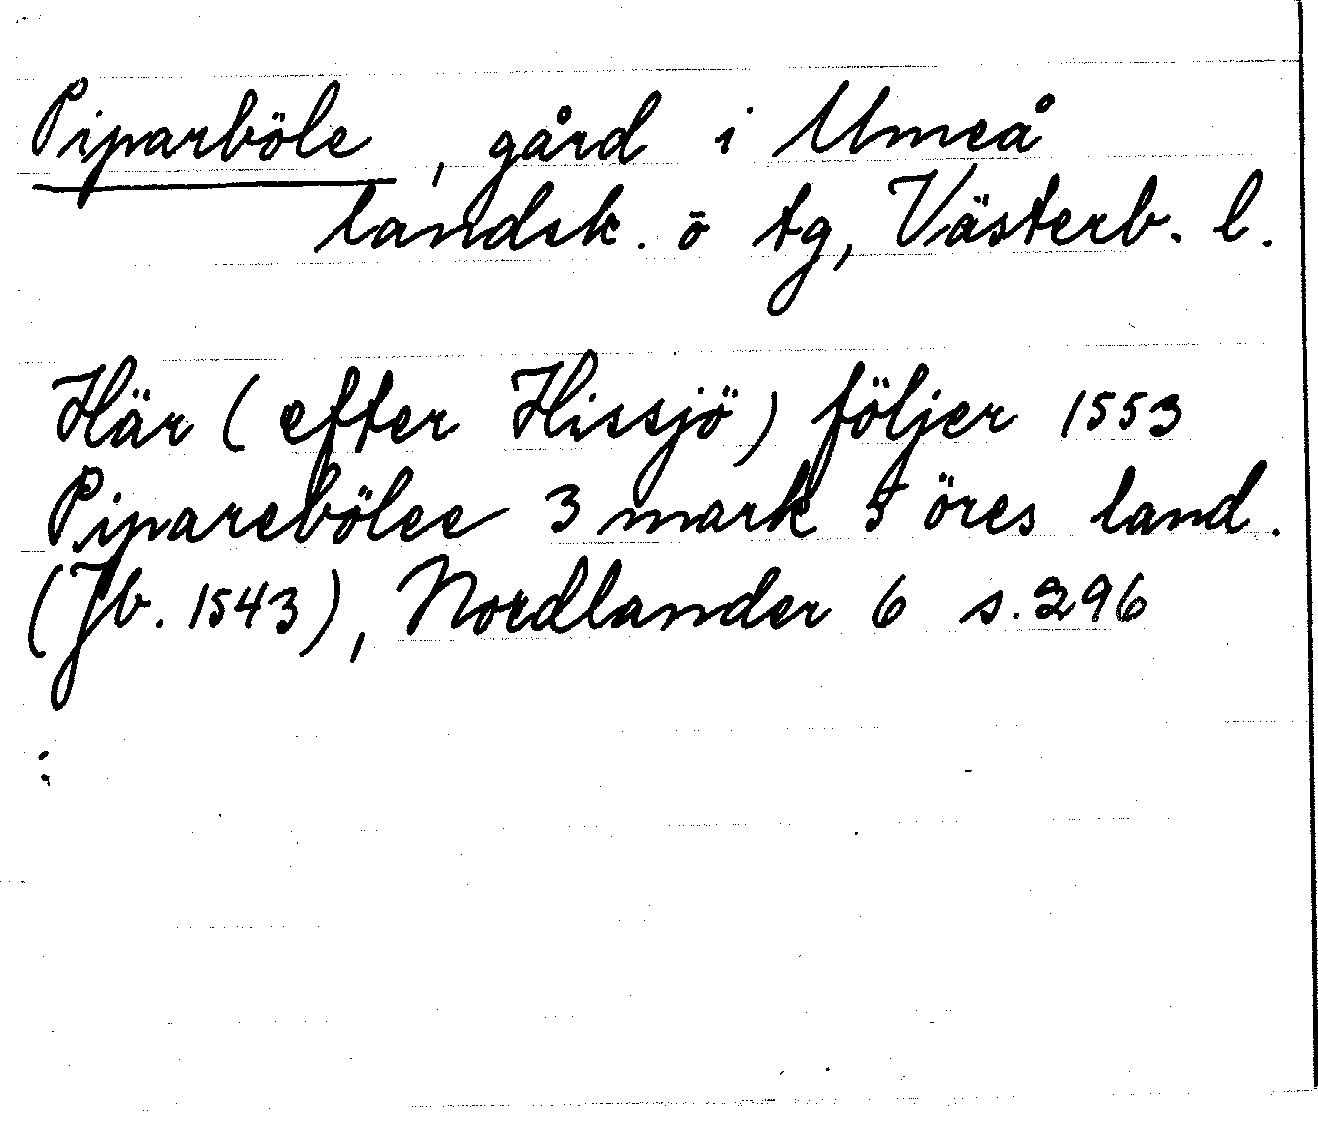 Piparböle, gård i Umeå
landsk. ö tg, Västerb. l.
Här (efter Hissjö) följer 1553
Piparebölee 3 mark 5 öres land.
(Jb. 1543), Nordlander 6 s. 296